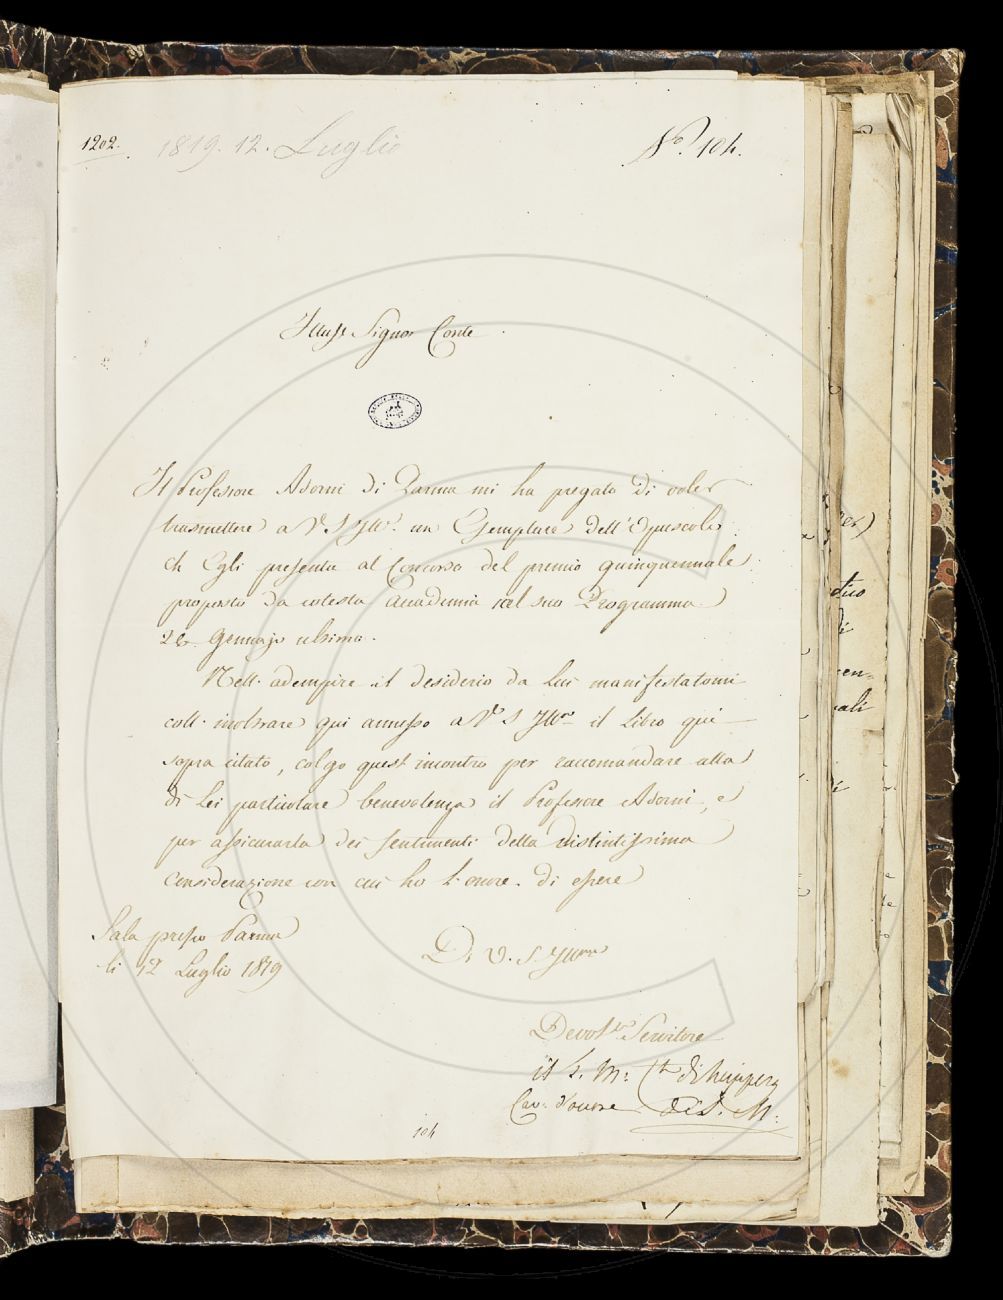 1202.
1819. 12. Luglio
N.º 104.
Illus.e Signor Conte
Il Professore Adorni di Parma mi ha pregato di voler
trasmettere a V. S. Ill.ª un Esemplare dell'Opuscolo
ch Egli presenta al Concorso del premio quinquennale
proposto da cotesta Accademia nel suo Programma
Gennajo ultimo.
Nell. adempire il desiderio da Lui manifestatomi
coll. inoltrare qui annesso a V. S Ill.ma il Libro qui
sopra citato, colgo quest incontro per raccomandare alla
di Lei particolare benevolenza il Professore Adorni, e
per assicurarla dei sentimenti della distintissima
Considerazione con cui ho l. onore. di essere
Sala presso Parma
li 12 Luglio 1819
D. V. S. Ill.ma
Devot.mo Servitore
il L. M:
Cav: d'onore di S. M.
104